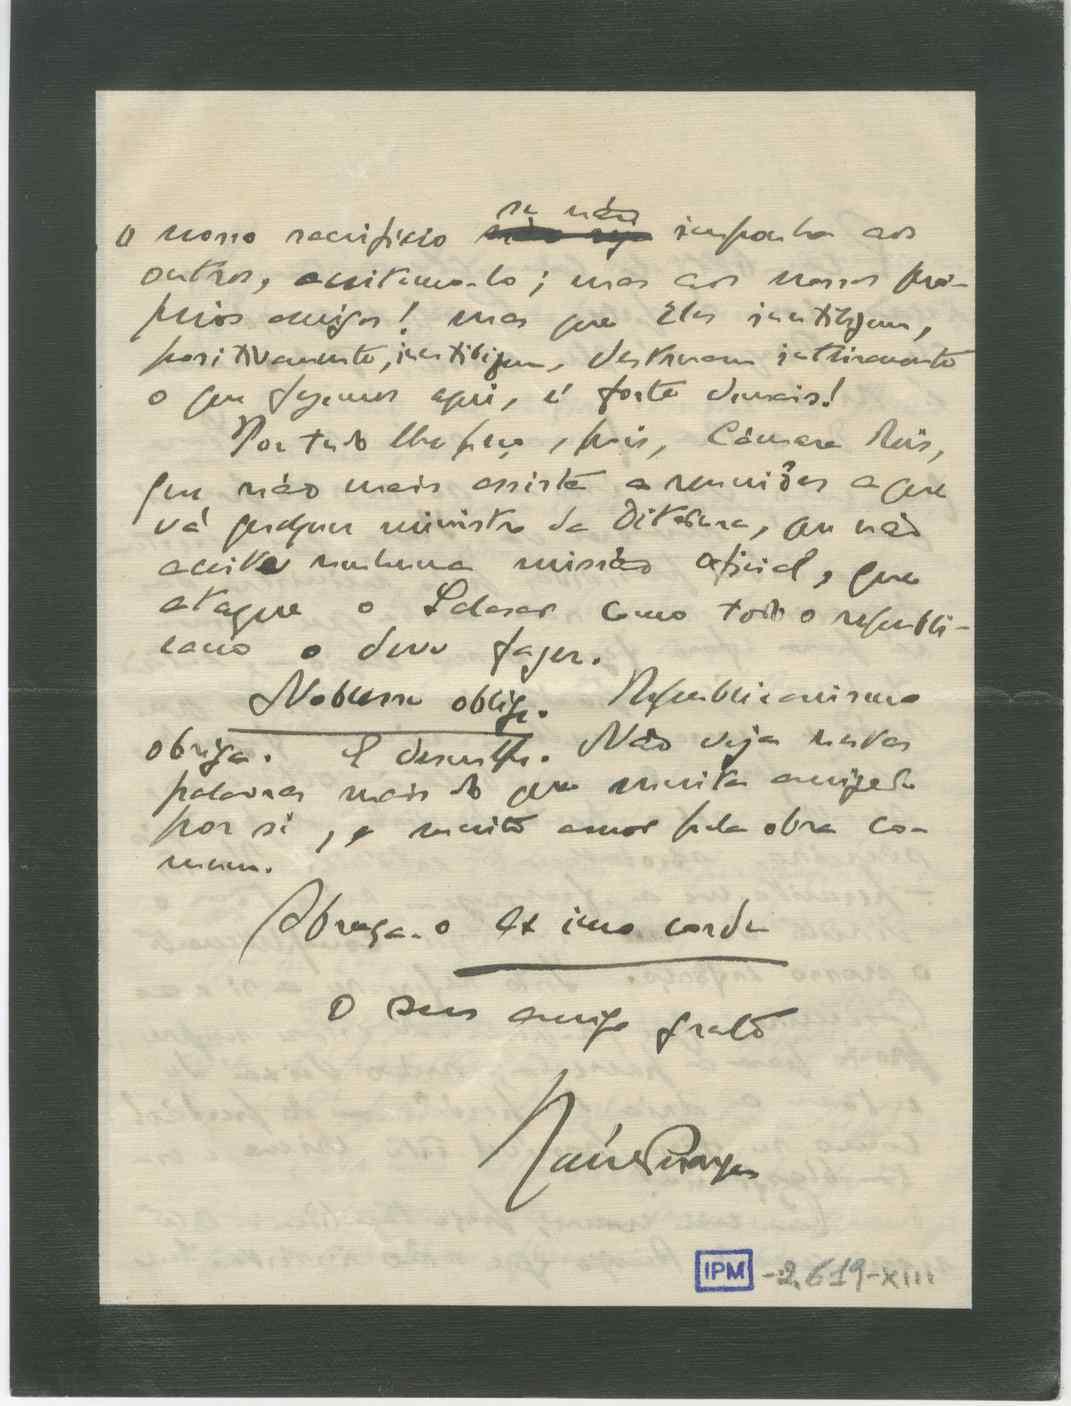 o nosso sacrificio se não importa aos
outros, aceitemo-lo; mas aos nossos pró-
prios amigos! mas que Eles inutilizem,
positivamente, inutilizem, destruam inteiramente
o que fazemos aqui, é forte demais!
Por tudo lhe peço, pois, Câmara Reis,
que não mais assista a reuniões a que
vá qualquer ministro da Ditadura, que não
aceite nenhuma missão oficial, que
ataque o Salazar como todo o republi-
cano o deve fazer.
Noblesse oblige. Republicanismo
obriga. E desculpe. Não veja nestas
palavras mais do que muita amizade
por si, e muito amor pela obra co-
mum.
Abraça-o ex imo corde
O seu amigo grato
IPM -2.619-XIII